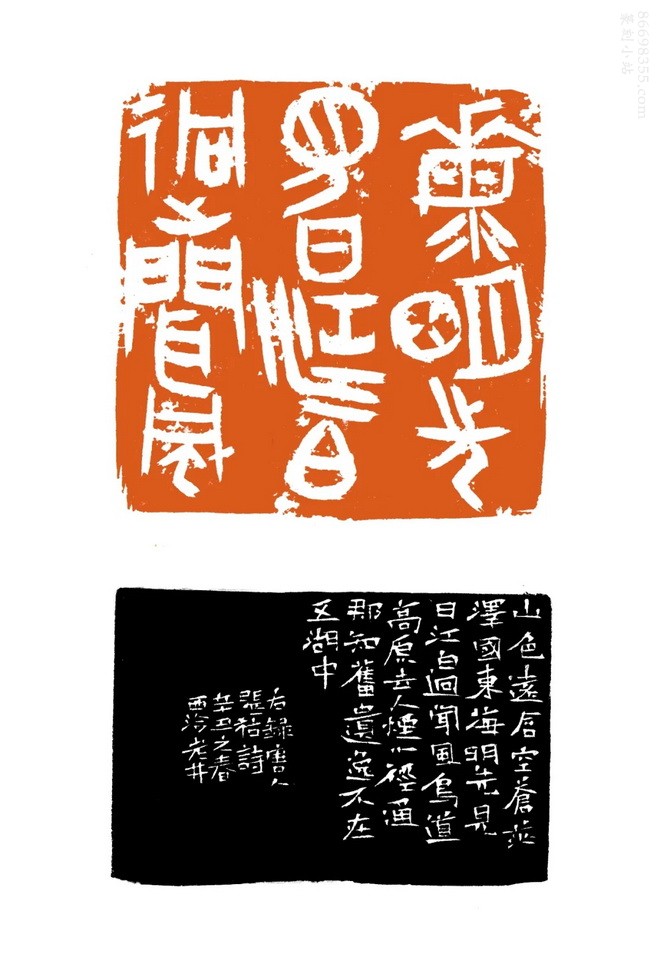 海明先
見日江白
迥聞風
山色遠含空蒼茫
澤國東海明先見
日江白迥聞風鳥道
高原去人煙小徑通
那知舊遺逸不在
五湖中
右録唐人
張祜詩
辛丑之春
西泠岩井
86698355.com
篆刻小站